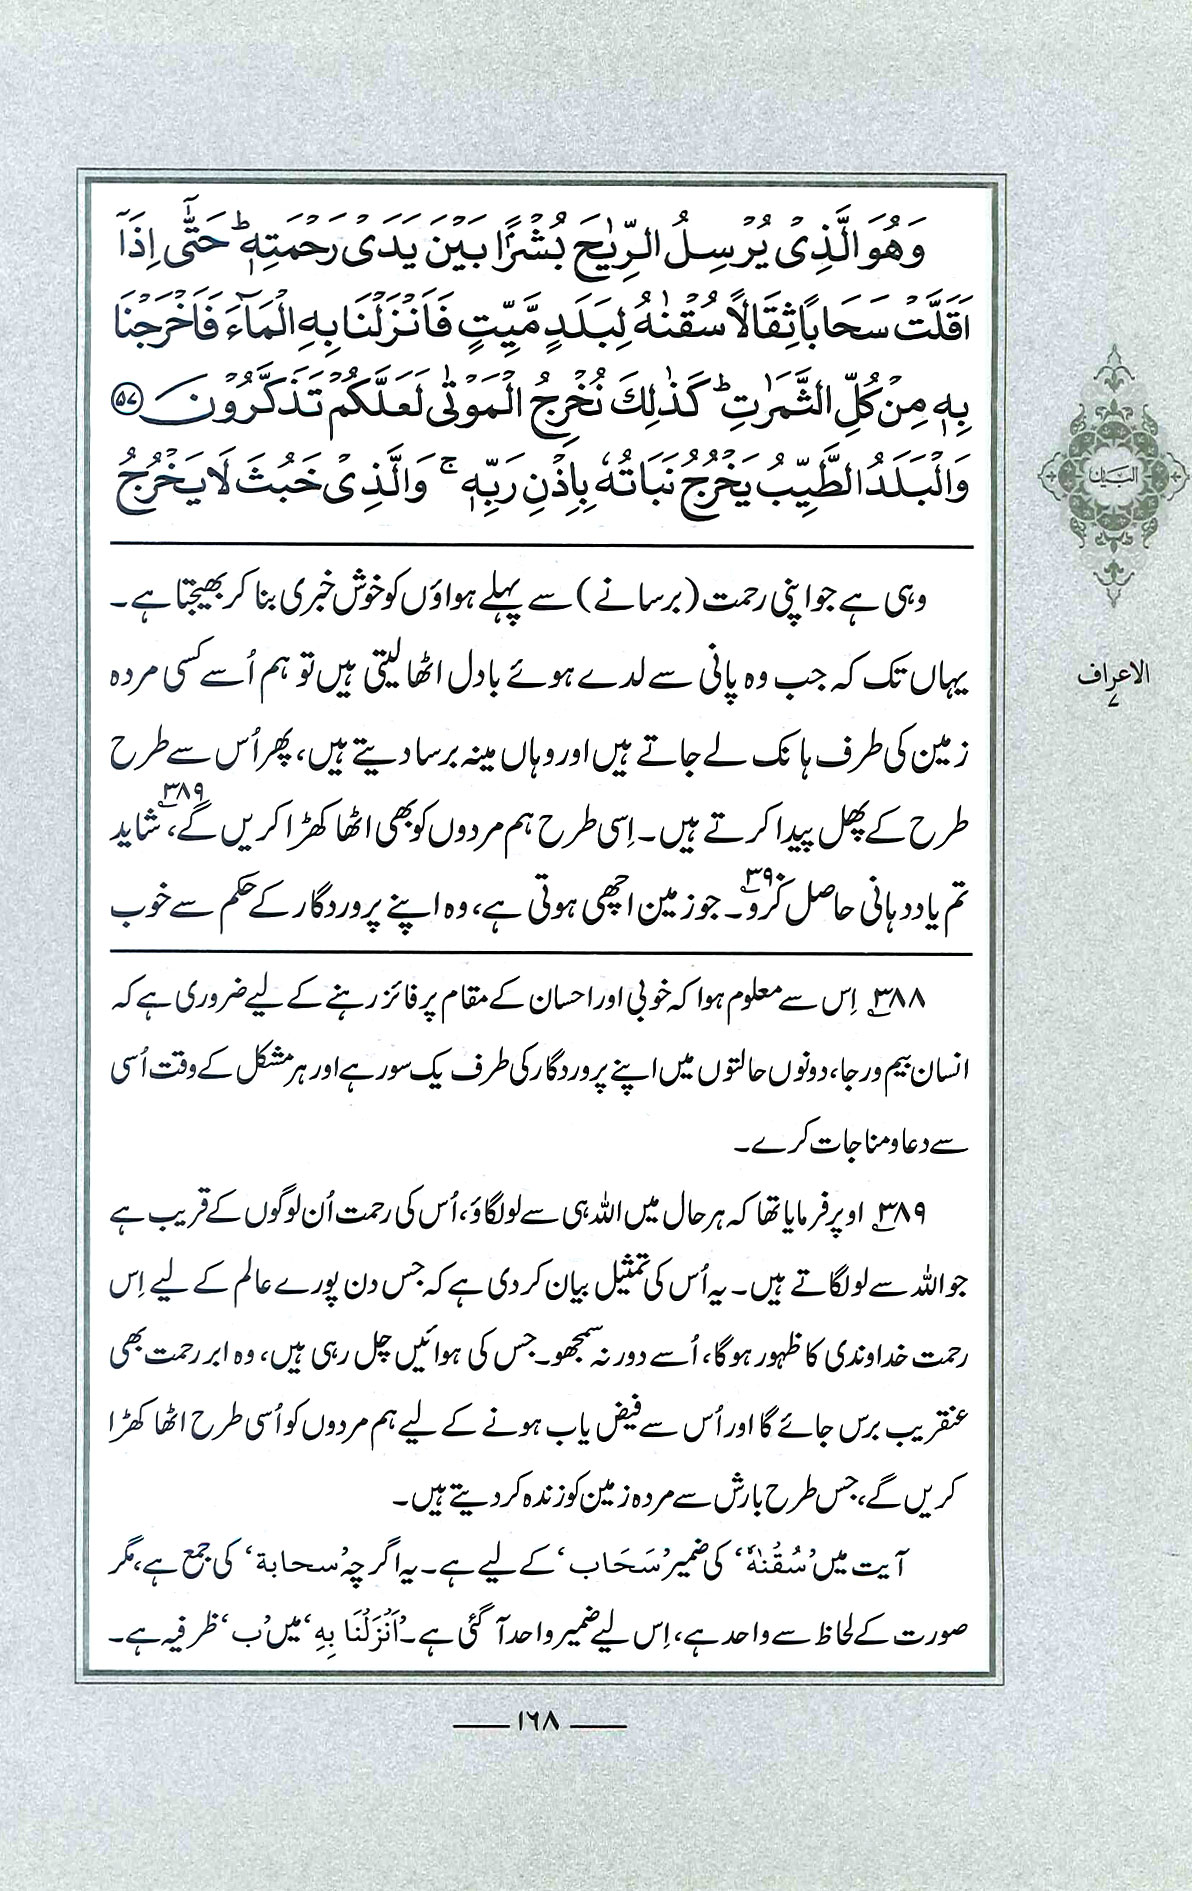 وَهُوَ الَّذِیْ یُرْسِلُ الرِّیٰحَ بُشْرًۢا بَیْنَ یَدَیْ رَحْمَتِهٖ ؕ حَتّٰۤی اِذَاۤ
اَقَلَّتْ سَحَابًا ثِقَالًا سُقْنٰهُ لِبَلَدٍ مَّیِّتٍ فَاَنْزَلْنَا بِهِ الْمَآءَ فَاَخْرَجْنَا
بِهٖ مِنْ كُلِّ الثَّمَرٰتِ ؕ كَذٰلِكَ نُخْرِجُ الْمَوْتٰی لَعَلَّكُمْ تَذَكَّرُوْنَ ﴿۵۷﴾
وَالْبَلَدُ الطَّیِّبُ یَخْرُجُ نَبَاتُهٗ بِاِذْنِ رَبِّهٖ ۚ وَالَّذِیْ خَبُثَ لَا یَخْرُجُ
وہی ہے جو اپنی رحمت (برسانے) سے پہلے ہواؤں کو خوش خبری بنا کر بھیجتا ہے۔
یہاں تک کہ جب وہ پانی سے لدے ہوئے بادل اٹھا لیتی ہیں تو ہم اُسے کسی مردہ
زمین کی طرف ہانک لے جاتے ہیں اور وہاں مینہ برسا دیتے ہیں، پھر اُس سے طرح
طرح کے پھل پیدا کرتے ہیں۔ اِسی طرح ہم مردوں کو بھی اٹھا کھڑا کریں گے،۳۸۹ شاید
تم یاددہانی حاصل کرو۳۹۰۔ جو زمین اچھی ہوتی ہے، وہ اپنے پروردگار کے حکم سے خوب
۳۸۸ اِس سے معلوم ہوا کہ خوبی اور احسان کے مقام پر فائز رہنے کے لیے ضروری ہے کہ
انسان بیم و رجا، دونوں حالتوں میں اپنے پروردگار کی طرف یک سو رہے اور ہر مشکل کے وقت اُسی
سے دعا و مناجات کرے۔
۳۸۹ اوپر فرمایا تھا کہ ہر حال میں اللہ ہی سے لو لگاؤ، اُس کی رحمت اُن لوگوں کے قریب ہے
جو اللہ سے لو لگاتے ہیں۔ یہ اُس کی تمثیل بیان کر دی ہے کہ جس دن پورے عالم کے لیے اِس
رحمت خداوندی کا ظہور ہوگا، اُسے دور نہ سمجھو۔ جس کی ہوائیں چل رہی ہیں، وہ ابر رحمت بھی
عنقریب برس جائے گا اور اُس سے فیض یاب ہونے کے لیے ہم مردوں کو اُسی طرح اٹھا کھڑا
کریں گے، جس طرح بارش سے مردہ زمین کو زندہ کر دیتے ہیں۔
آیت میں ’سُقْنٰهُ‘ کی ضمیر ’سَحَاب‘ کے لیے ہے۔ یہ اگرچہ ’سحابة‘ کی جمع ہے، مگر
صورت کے لحاظ سے واحد ہے، اِس لیے ضمیر واحد آ گئی ہے۔ ’اَنْزَلْنَا بِهِ‘ میں ’ب‘ ظرفیہ ہے۔
البیان
الاعراف
۷
۱۶۸